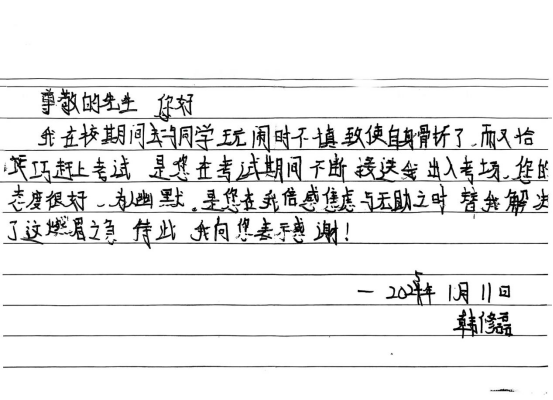 尊敬的先生 您好
我在校期间与同学玩闹时不慎致使自身骨折了,而又恰
恰巧赶上考试 是您在考试期间不断接送我出入考场,您的
态度很好 为人幽默。是您在我倍感焦虑与无助之时 替我解决
了这燃眉之急 待此 我向您表示感谢!
一 202 年 1月11日
韩修磊